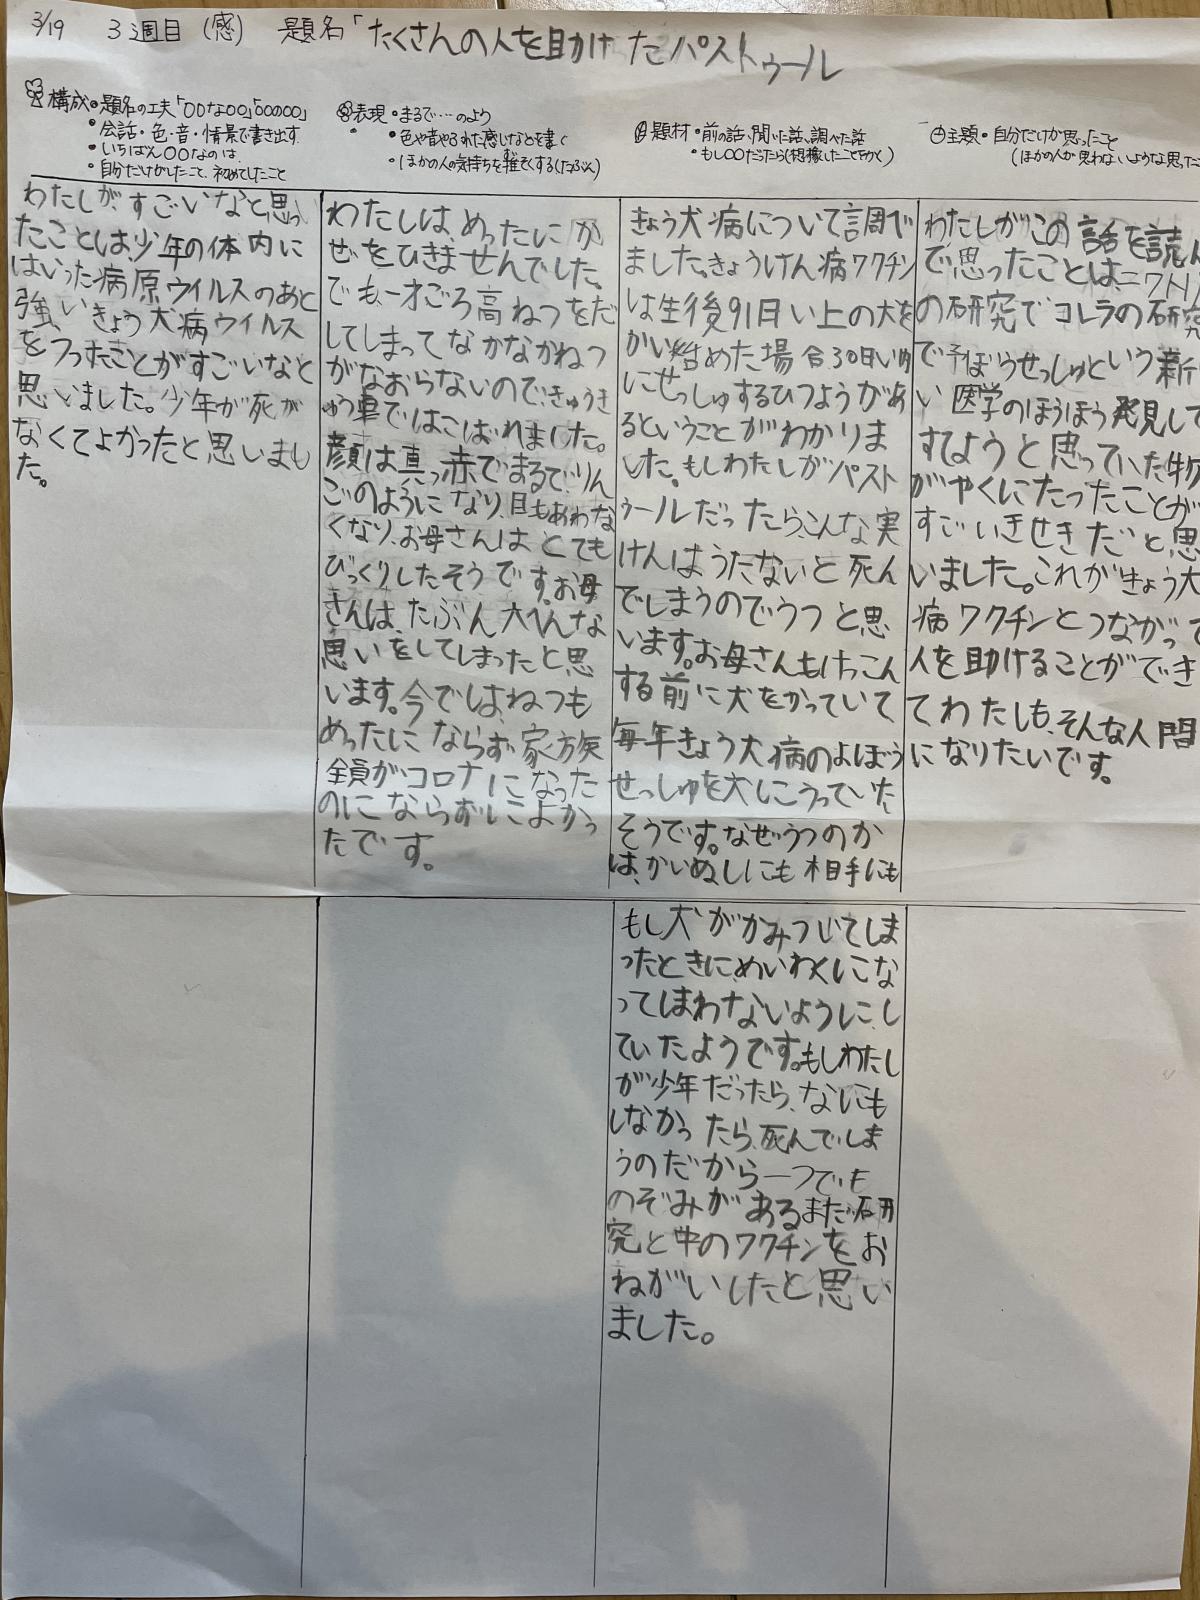 3/19 3週目 (感) 題名「たくさんの人を助けたパストゥール
構成・題名の工夫「〇〇な〇〇」「〇〇の〇〇」
・会話・色・音・情景で書き出す
・いちばん〇〇なのは、
・自分だけがしたこと、初めてしたこと
表現・まるで…のよう
・色や音やふれた感じなどを書く
・ほかの人の気持ちを推そくする(たぶん)
題材・前の話、聞いた話、調べた話
・もし〇〇だったら(想像したことをかく)
主題・自分だけが思ったこと
(ほかの人が思わないような思った
わたしが、すごいなと思っ
たことは、少年の体内に
はいった病原ウイルスのあと
強いきょう犬病ウイルス
をうつたことがすごいなと
思いました。少年が死が
なくてよかったと思いまし
た。
わたしは、めったにか
ぜをひきませんでした。
でも、一才ごろ高ねつをだ
してしまってなかなかねつ
がなおらないので、きゅうき
ゅう車ではこばれました。
顔は真っ赤で、まるで、りん
ごのようになり、目もあわな
くなり、お母さんはとても
びっくりしたそうです。お母
さんは、たぶん大へんな
思いをしてしまったと思
います。今ではねつも
めったにならず家族
全員がコロナになった
のにならずによかっ
たです。
きょう犬病について調べ
ました。きょうけん病ワクチン
は生後91日い上の犬を
かい始めた場合30日い内
にせっしゅするひつようがあ
るということがわかりま
した。もしわたしがパスト
ゥールだったら、こんな実
けんはうたないと死ん
でしまうのでうつと思
います。お母さんもけっこん
する前に犬をかっていて
毎年きょう犬病のよぼう
せっしゅを犬にうっていた
そうです。なぜうつのか
は、かいぬしにも相手にも
もし犬がかみついてしま
ったときに、めいわくにな
ってしまわないように、し
ていたようです。もしわたし
が少年だったら、なにも
しなかったら、死んでしま
うのだから一つでも
のぞみがあるまだ研
究と中のワクチンをお
ねがいしたと思い
ました。
わたしがこの話を読ん
で思ったことは、ニワトリ
の研究でコレラの研究
で予ぼうせっしゅという新
い医学のほうほう発見して
すてようと思っていた物
がやくにたったことが
すごいきせきだと思
いました。これがきょう犬
病ワクチンとつながって
人を助けることができ
てわたしも、そんな人間
になりたいです。